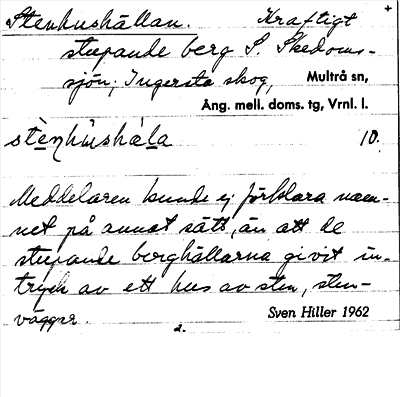 Stenhushällan. Kraftigt +
stupande berg S. Skedoms-
sjön; Ingersta skog, Multrå sn,
Ång. mell. doms. tg, Vrnl. l.
stè̱ŋhùshàla̱ 10.
Meddelaren kunde ej förklara nam-
net på annat sätt, än att de
stupande berghällarna givit in-
tryck av ett hus av sten, sten-
väggar. Sven Hiller 1962
2.